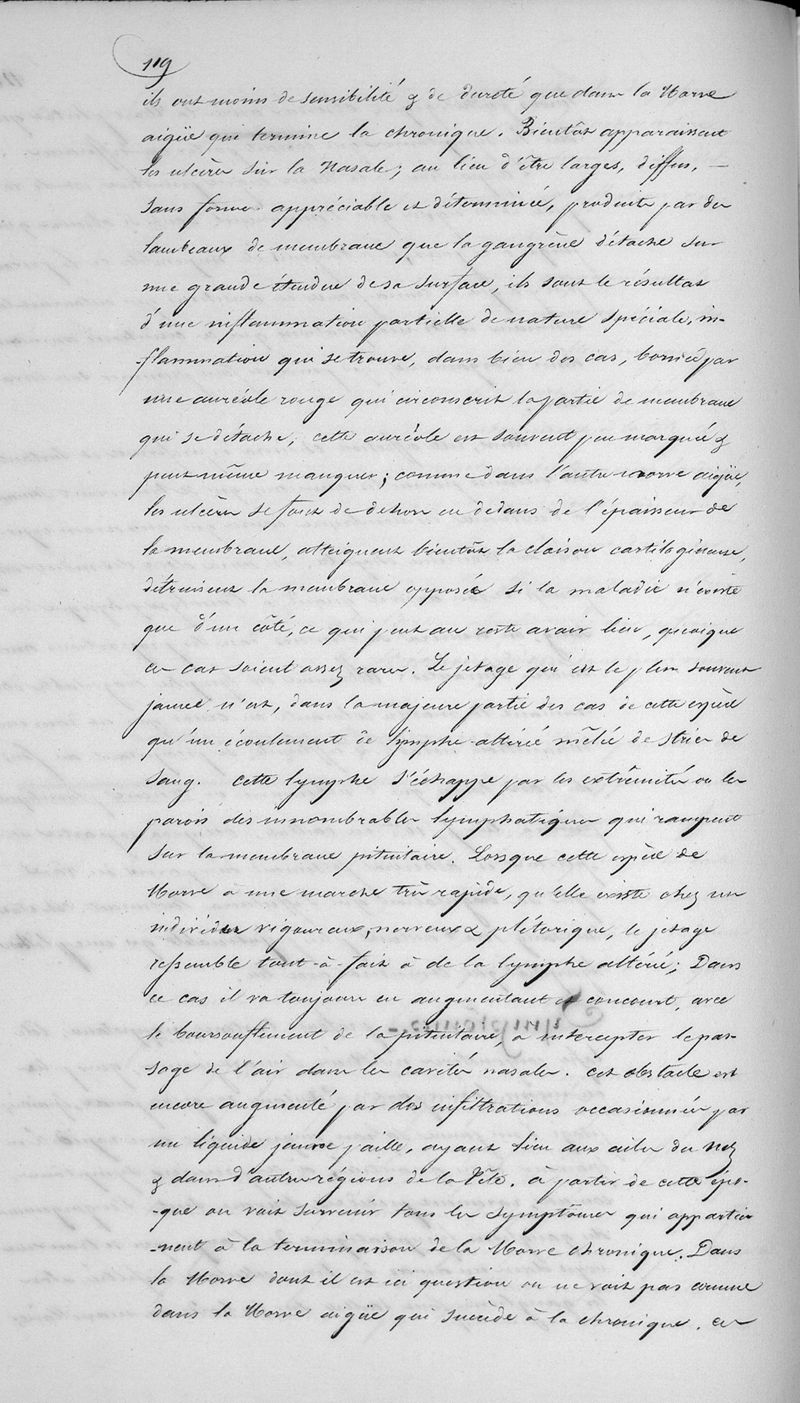 119
ils ont moins de sensibilité & de dureté que dans la Morve
aigüe qui termine la chronique. Bientôt apparaissent
les ulcères sur la Nasale; au lieu d'être larges, diffus, —
sans forme appréciable et déterminée, produits par des
lambeaux de membrane que la gangrène détache sur
une grande étendue de sa surface, ils sont le résultat
d'une inflammation partielle de nature spéciale, in-
-flammation qui se trouve, dans bien des cas, bornée par
une auréole rouge qui circonscrit la partie de membrane
qui se détache; cette auréole est souvent peu marquée &
peut même manquer; comme dans l'autre morve aigüe,
les ulcères se font de dehors en dedans de l'épaisseur de
la membrane, atteignent bientôt la cloison cartilagineuse,
détruisent la membrane opposée si la maladie n'existe
que d'un côté, ce qui peut au reste avoir lieu, quoique
ces cas soient assez rares. Le jetage qui est le plus souvent
jaune n'est, dans la majeure partie des cas de cette espèce
qu'un écoulement de lymphe altérée mêlée de stries de
sang. Cette lymphe s'échappe par les extrêmités ou les
parois des innombrables lymphatiques qui rampent
sur la membrane pituitaire. Lorsque cette espèce de
Morve a une marche très rapide, qu'elle existe chez un
individu vigoureux, nerveux & plétorique, le jetage
ressemble tout-à-fait à de la lymphe altérée; Dans
ce cas il va toujours en augmentant et concourt, avec
le boursouflement de la pituitaire, à intercepter le pas-
sage de l'air dans les cavités nasales. Cet obstacle est
encore augmenté par des infiltrations occasionnées par
un liquide jaune paille, ayant lieu aux ailes du nez
& dans d'autres régions de la Tête. à partir de cette épo-
-que on voit survenir tous les symptômes qui appartien
-nent à la terminaison de la Morve chronique. Dans
la Morve dont il est ici question on ne voit pas comme
dans la Morve aigüe qui succède à la chronique. ces